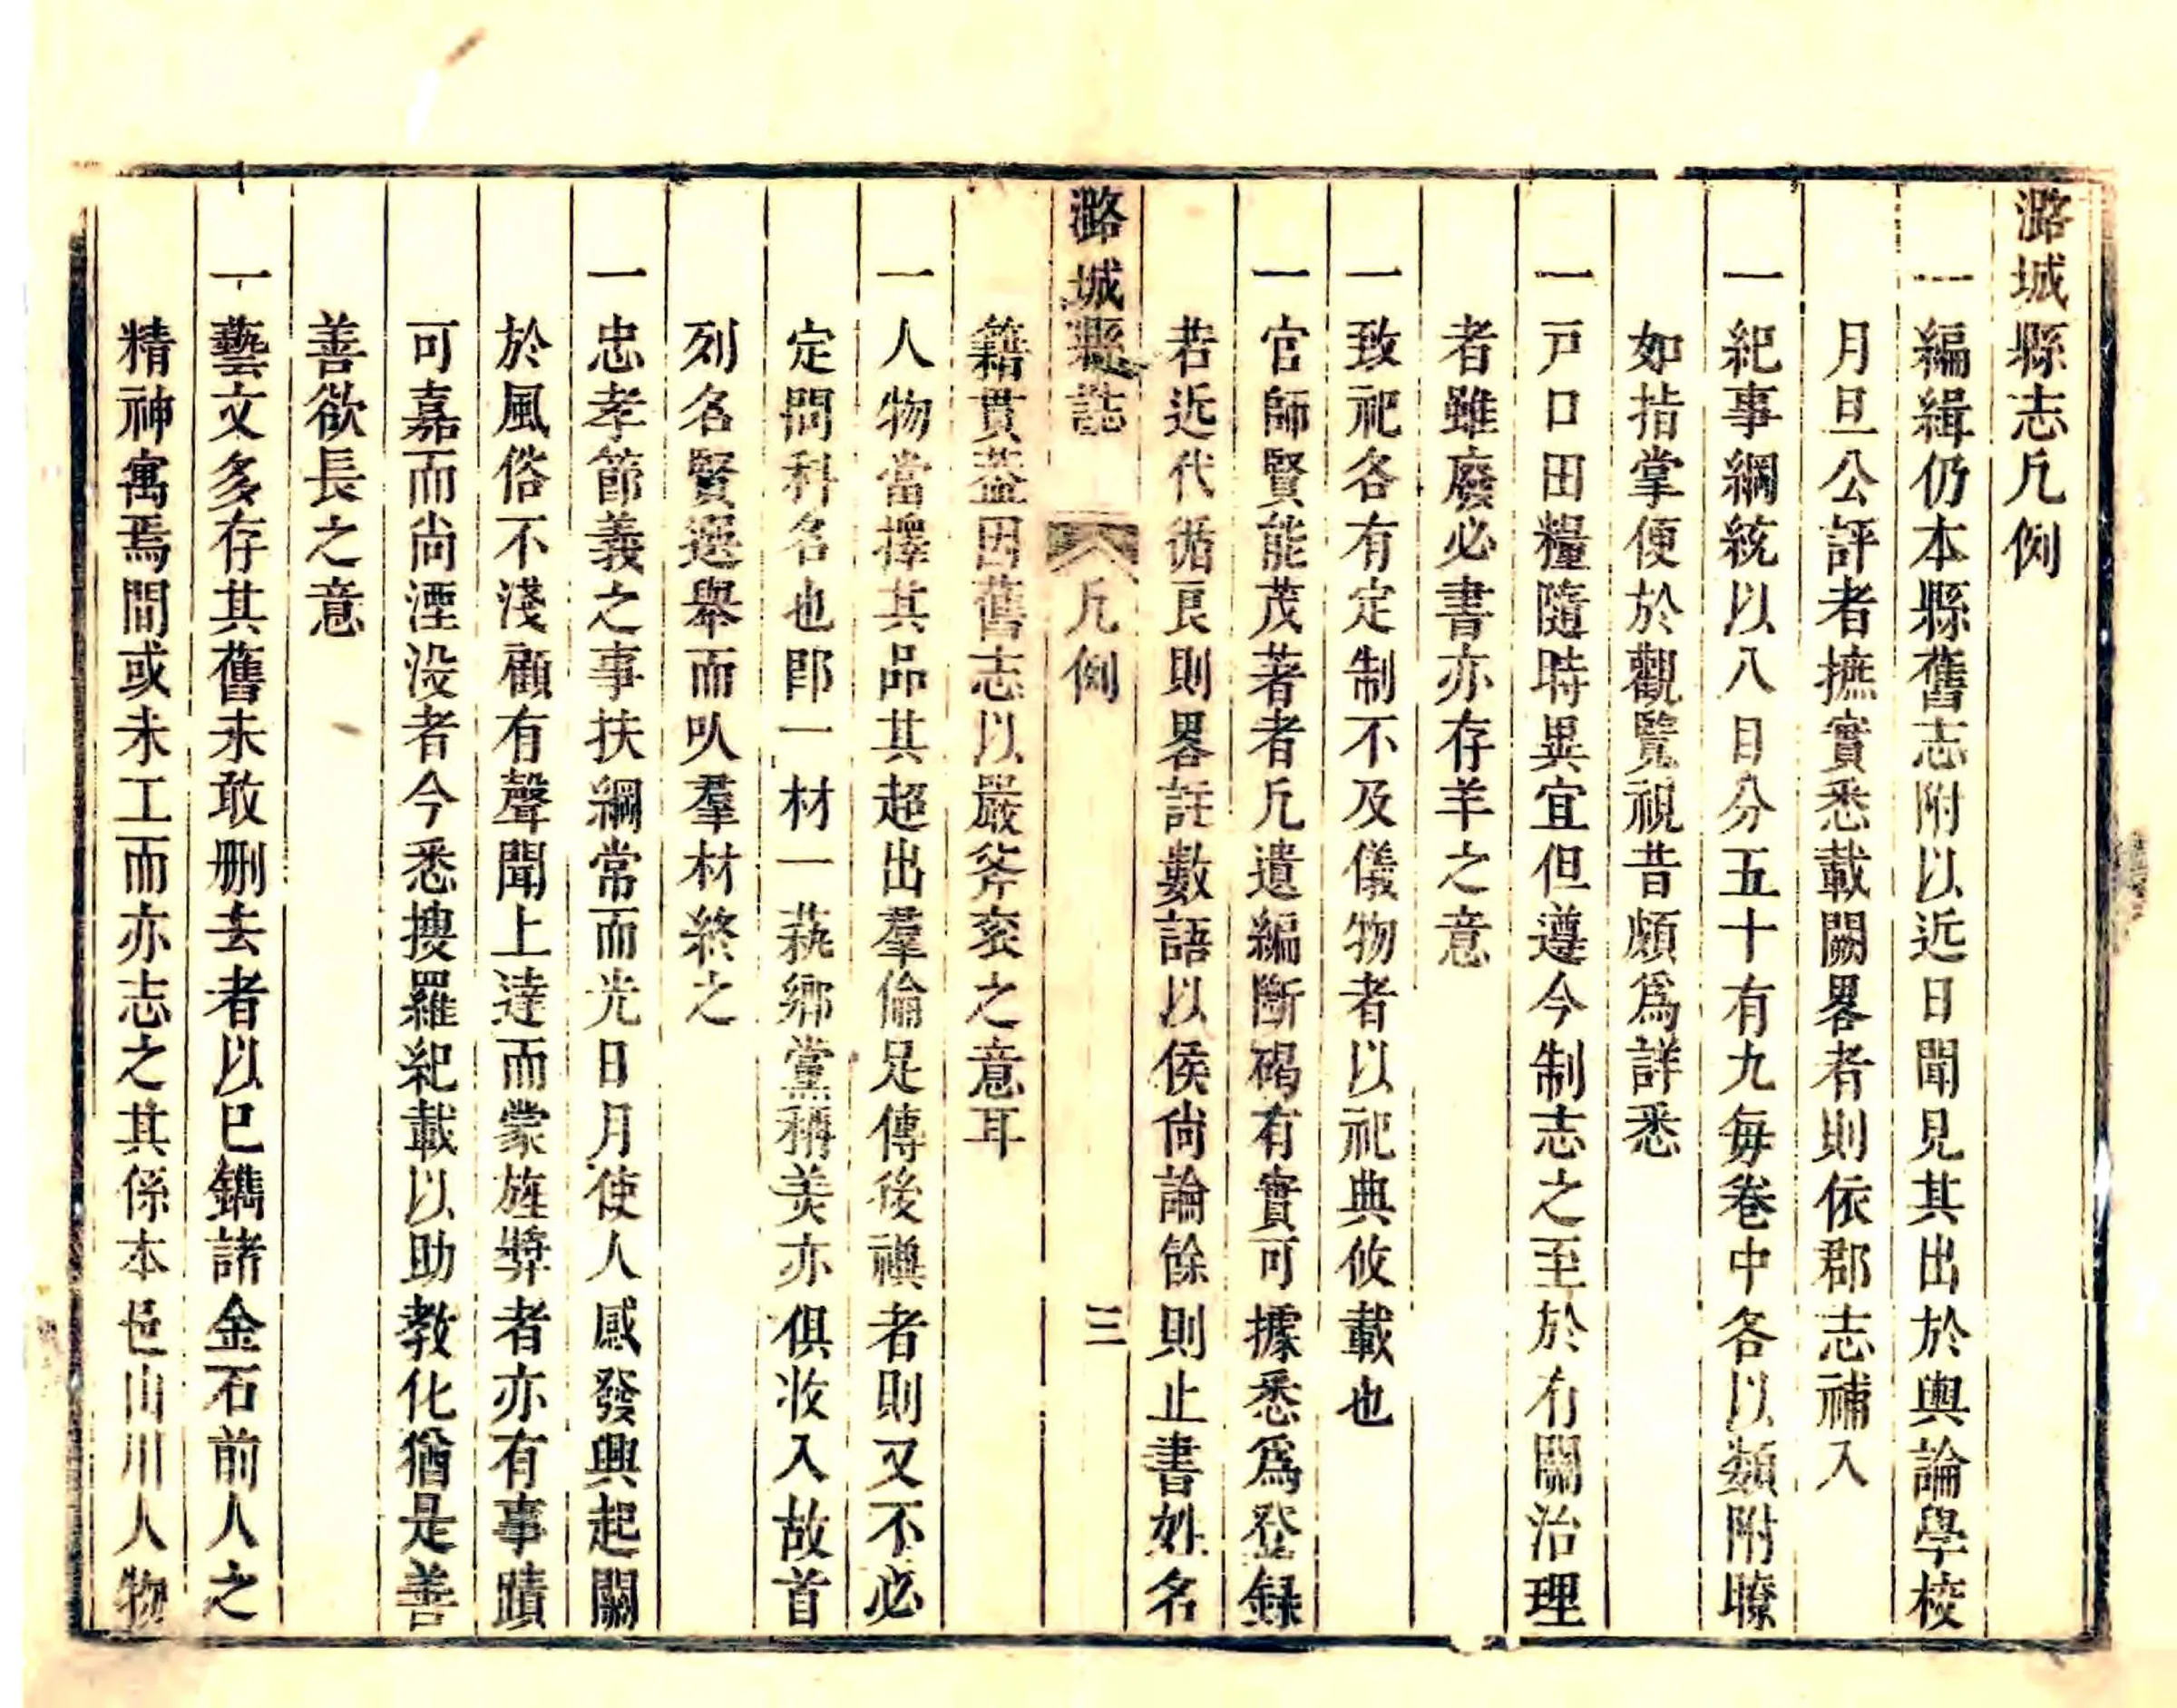 潞城縣志凡例
一編緝仍本縣舊志附以近日聞見其出於輿論學校
月旦公評者摭實悉載闕畧者則依郡志補入
一紀事綱統以八目分五十有九每卷中各以類附瞭
如指掌便於觀覽視昔頗爲詳悉
一戸口田糧隨時異宜但遵今制志之至於有關治理
者雖廢必書亦存羊之意
一致祀各有定制不及儀物者以祀典攸載也
一官師賢能茂著者凡遺編斷碣有實可據悉爲登録
若近代循良則畧註數語以俟尚論餘則止書姓名
潞城縣誌 凡例 三
籍貫葢因舊志以嚴斧衮之意耳
一人物當擇其品其超出羣倫足傳後禩者則又不必
定問科名也即一材一蓺鄉黨稱美亦俱收入故首
列名賢選舉而以羣材終之
一忠孝節義之事扶綱常而光日月使人感發興起關
於風俗不淺顧有聲聞上達而蒙旌奬者亦有事蹟
可嘉而尚湮没者今悉搜羅紀載以助教化猶是善
善欲長之意
一藝文多存其舊未敢刪去者以已鐫諸金石前人之
精神寓焉間或未工而亦志之其係本邑山川人物